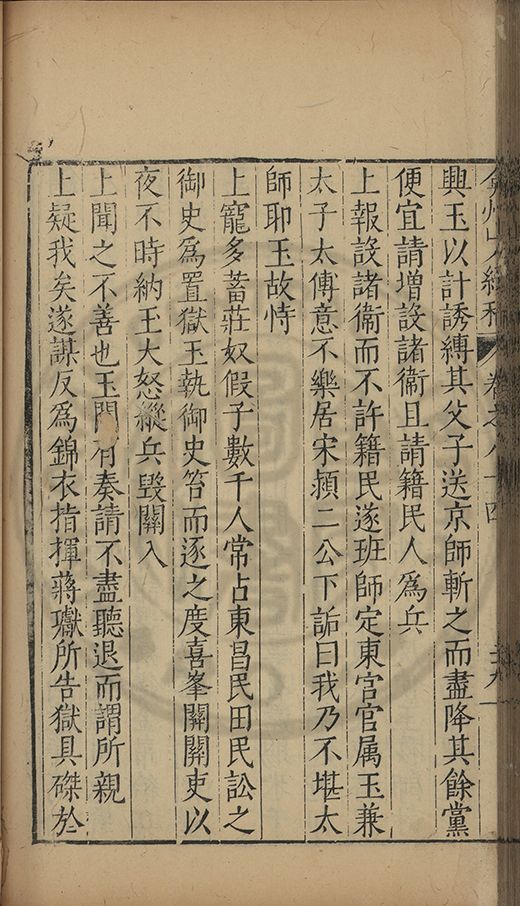 弇州山人續稿 卷之八十四
興玉以計誘縛其父子送京師斬之而盡降其餘黨
便宜請增設諸衞且請籍民人爲兵
上報設諸衞而不許籍民遂班師定東宫官属玉兼
太子太傅意不樂居宋潁二公下詬曰我乃不堪太
師耶玉故恃
上寵多蓄莊奴假子數千人常占東昌民田民訟之
御史爲置獄玉執御史笞而逐之度喜峯關關吏以
夜不時納玉大怒縱兵毁關入
上聞之不善也玉間有奏請不盡聽退而謂所親
上疑我矣遂謀反爲錦衣指揮蔣瓛所告獄具磔於